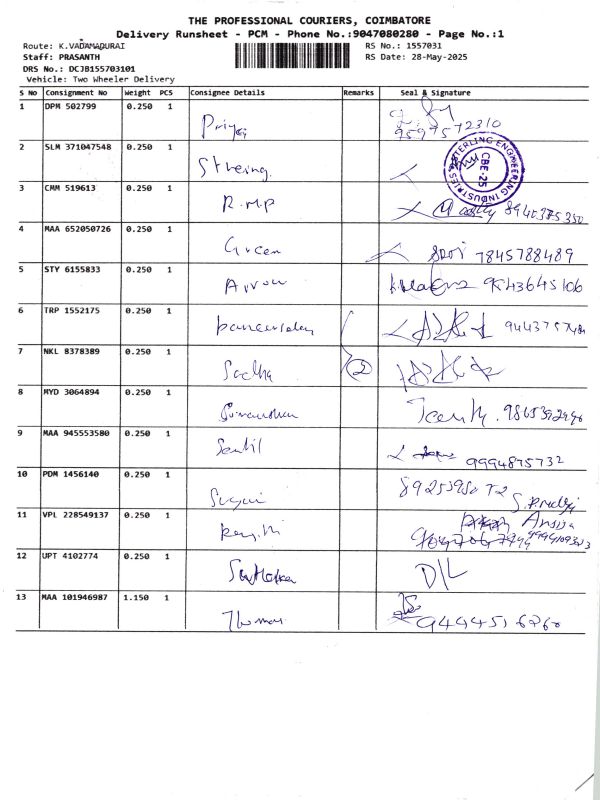 THE PROFESSIONAL COURIERS, COIMBATORE
Delivery Runsheet - PCM - Phone No.:9047080280 - Page No.:1
Route: K.VADAMADURAI
RS No.: 1557031
Staff: PRASANTH
RS Date: 28-May-2025
DRS No.: DCJB155703101
Vehicle: Two Wheeler Delivery
S No Consignment No Weight PCS Consignee Details Remarks Seal & Signature
1 DPM 502799 0.250 1 Priya 9597572310
2 SLM 371047548 0.250 1 Stheing. STERLING ENGINEERING INDUSTRIES CBE-25
3 CMM 519613 0.250 1 R.MP 8940375350
4 MAA 652050726 0.250 1 Green 7845788489
5 STY 6155833 0.250 1 Arrow 9543645106
6 TRP 1552175 0.250 1
7 NKL 8378389 0.250 1 Sadha 2
8 MYD 3064894 0.250 1
9 MAA 945553580 0.250 1 Senthil 9994895732
10 PDM 1456140 0.250 1
11 VPL 228549137 0.250 1
12 UPT 4102774 0.250 1 D/L
13 MAA 101946987 1.150 1 Thomas